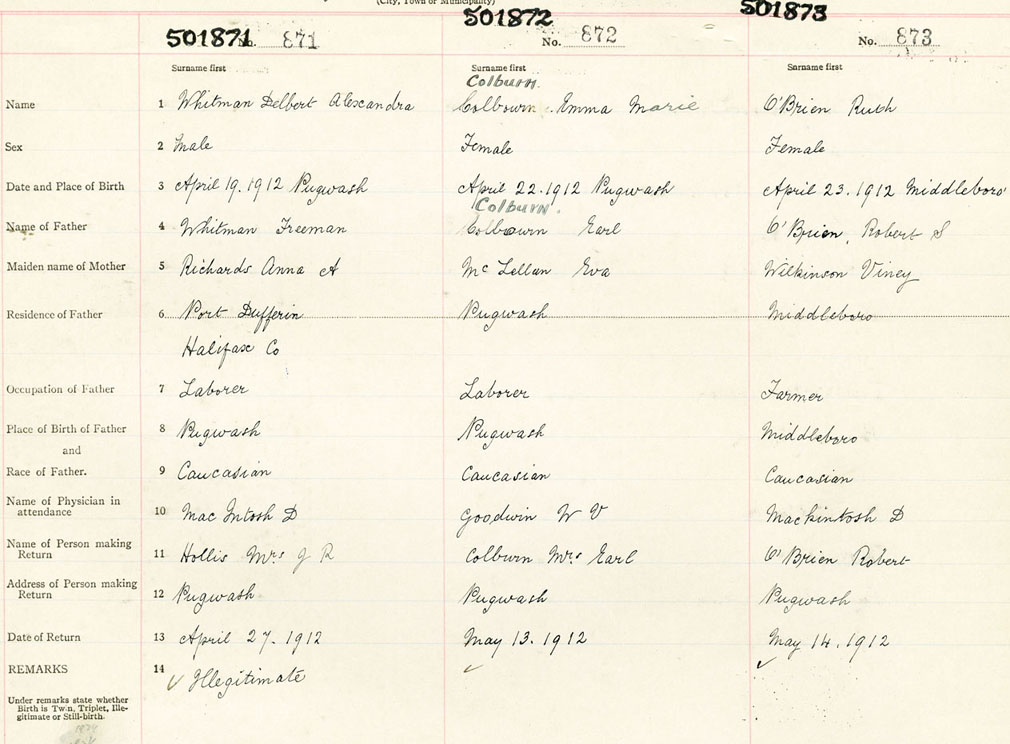 (City, Town or Municipality)
501871 No. 871 501872 No. 872 501873 No. 873
Surname first Surname first Surname first
Colburn
Name 1 Whitman Delbert Alexandra Colbourn Emma Marie O'Brien Ruth
Sex 2 Male Female Female
Date and Place of Birth 3 April 19. 1912 Pugwash April 22. 1912 Pugwash April 23. 1912 Middleboro
Colburn
Name of Father 4 Whitman Freeman Colbourn Earl O'Brien, Robert S
Maiden name of Mother 5 Richards Anna A Mc Lellan Eva Wilkinson Viney
Residence of Father 6 Port Dufferin Pugwash Middleboro
Halifax Co
Occupation of Father 7 Laborer Laborer Farmer
Place of Birth of Father 8 Pugwash Pugwash Middleboro
and
Race of Father. 9 Caucasian Caucasian Caucasian
Name of Physician in
attendance 10 Mac Intosh D Goodwin W V Mackintosh D
Name of Person making
Return 11 Hollis Mrs J R Colburn Mrs Earl O'Brien Robert
Address of Person making
Return 12 Pugwash Pugwash Pugwash
Date of Return 13 April 27. 1912 May 13. 1912 May 14. 1912
REMARKS 14 ✓ Illegitimate ✓ ✓
Under remarks state whether
Birth is Twin, Triplet, Ille-
gitimate or Still-birth.